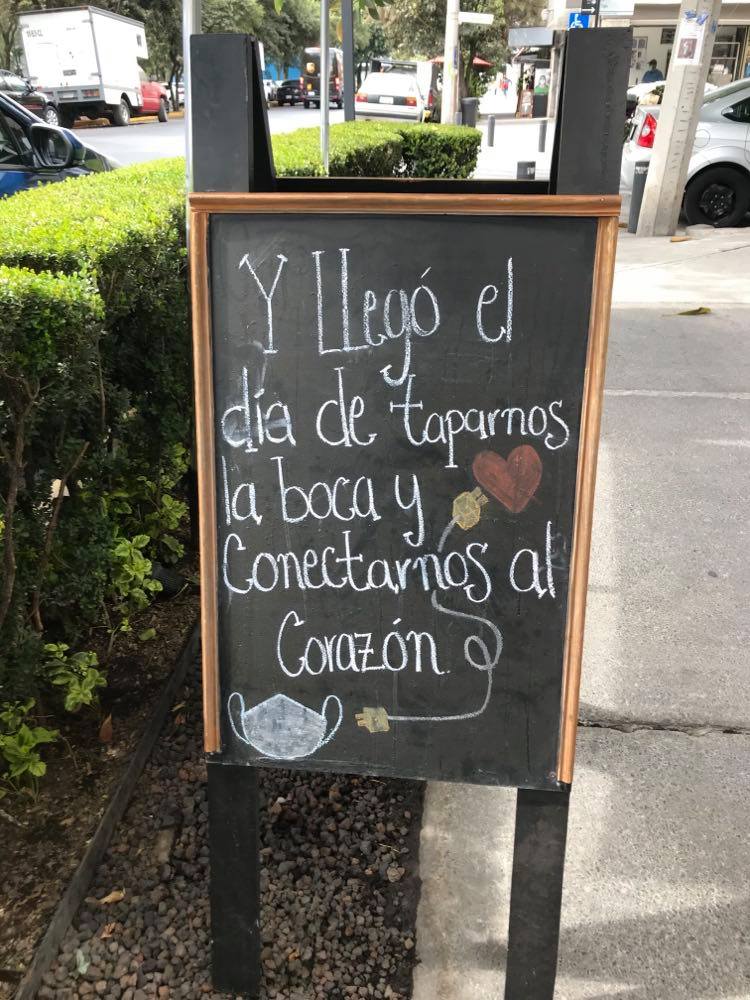 Y LLegó el
día de taparnos
la boca y
Conectarnos al
Corazón